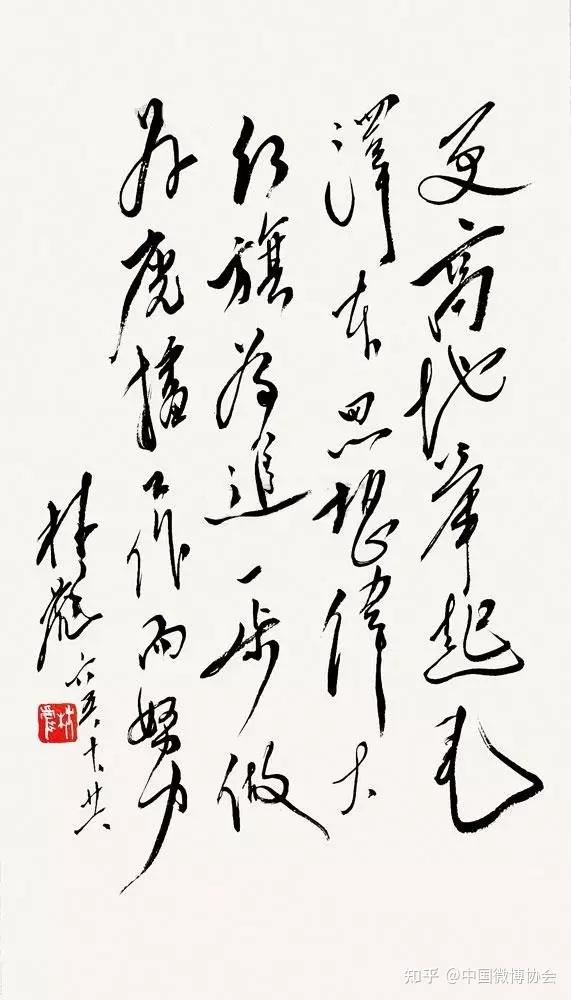 更高地舉起毛
澤东思想偉大
红旗為進一步做
好廣播工作而努力
林彪 六五、十、廿
林彪
知乎 @中国微博协会